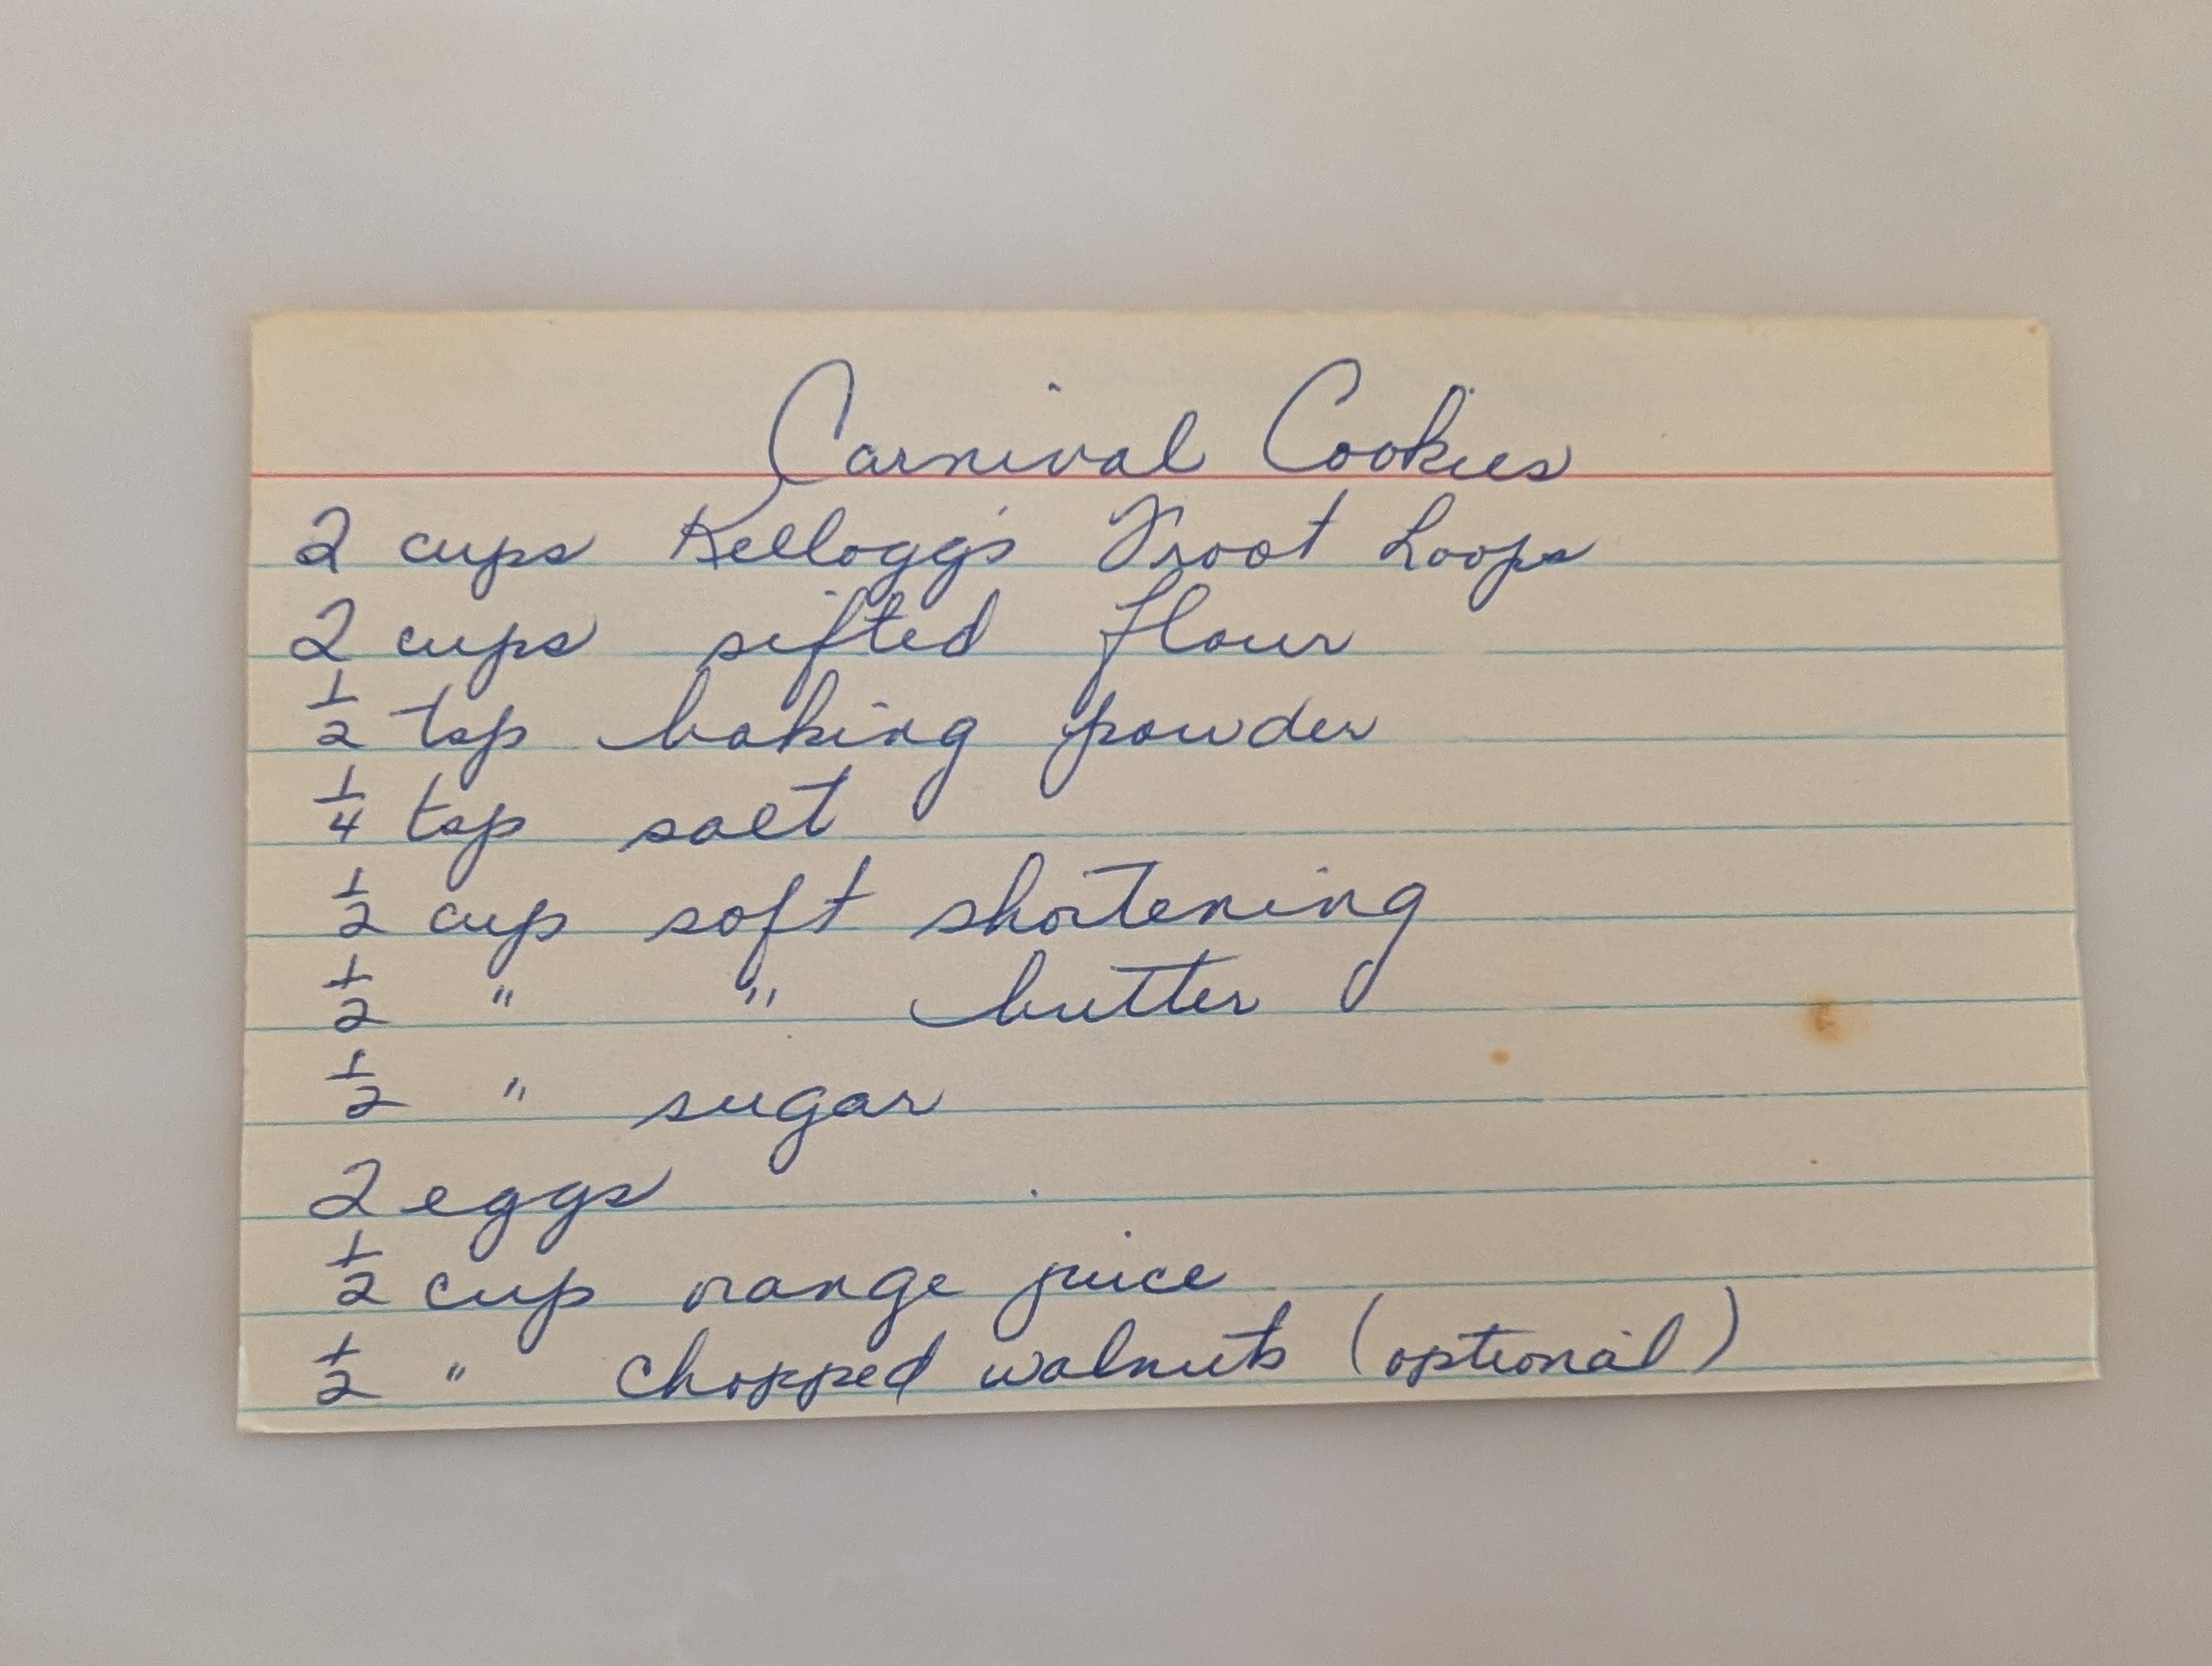 Carnival Cookies
2 cups Kellogg's Froot Loops
2 cups sifted flour
1/2 tsp baking powder
1/4 tsp salt
1/2 cup soft shortening
1/2 " " butter
1/2 " sugar
2 eggs
1/2 cup orange juice
1/2 " chopped walnuts (optional)